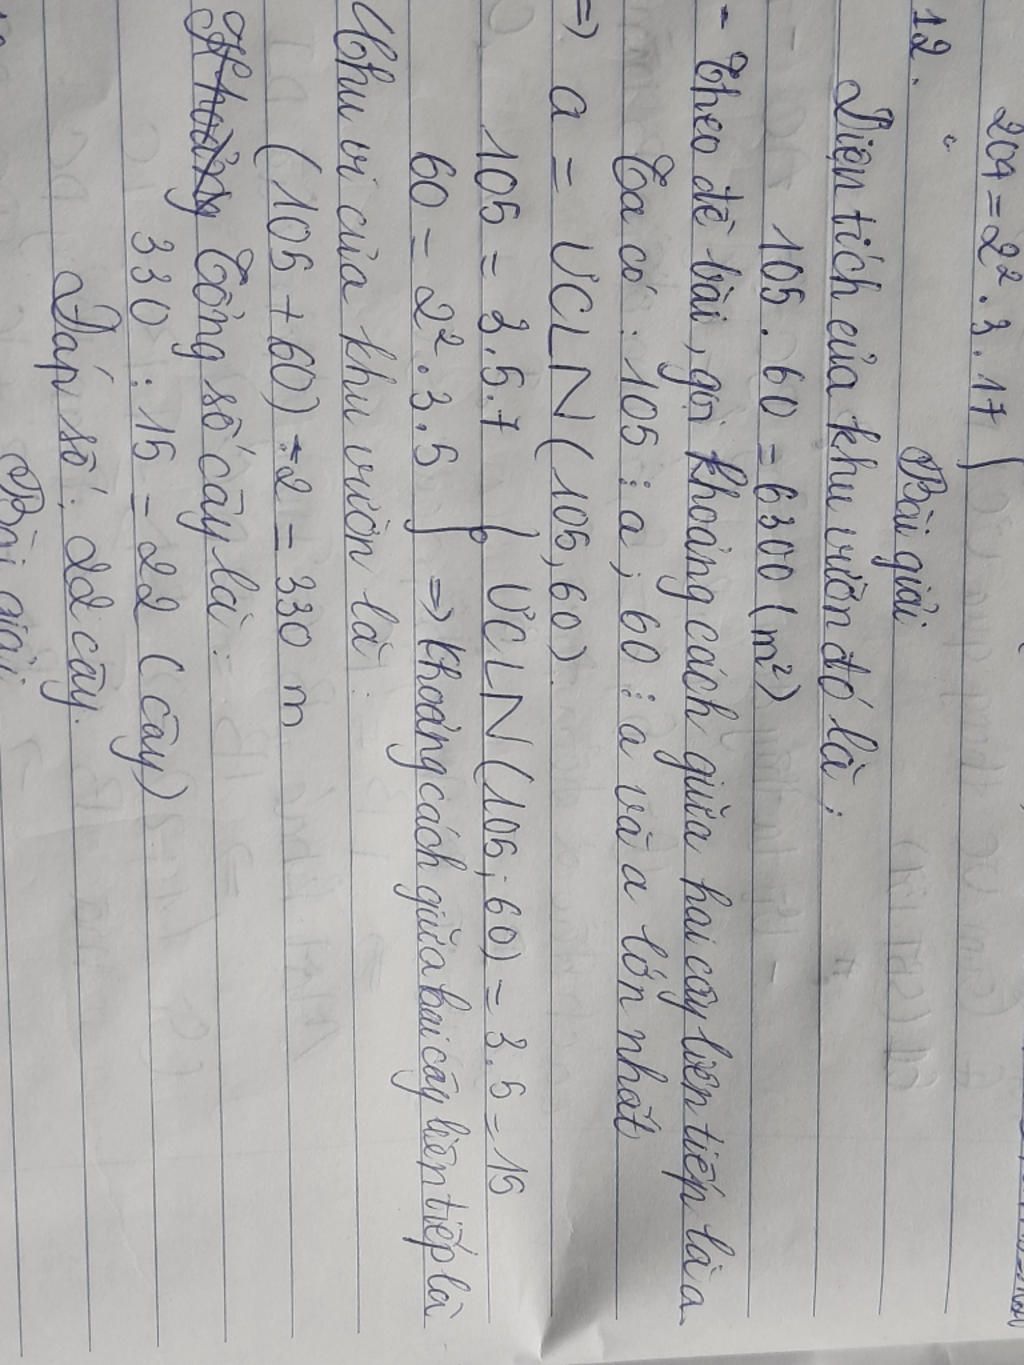 204 = 2². 3 . 17
12.
Bài giải
Diện tích của khu vườn đó là :
105 . 60 = 6300 (m²)
- Theo đề bài, gọi khoảng cách giữa hai cây liên tiếp là a
Ta có : 105 ⋮ a ; 60 ⋮ a và a lớn nhất
=> a = ƯCLN (105, 60).
105 = 3.5.7 } ƯCLN (105; 60) = 3.5 = 15
60 = 2². 3.5 } => khoảng cách giữa hai cây liên tiếp là
Chu vi của khu vườn là :
(105 + 60) . 2 = 330 m
Tổng số cây là :
330 : 15 = 22 (cây)
Đáp số: 22 cây.
Bài giải